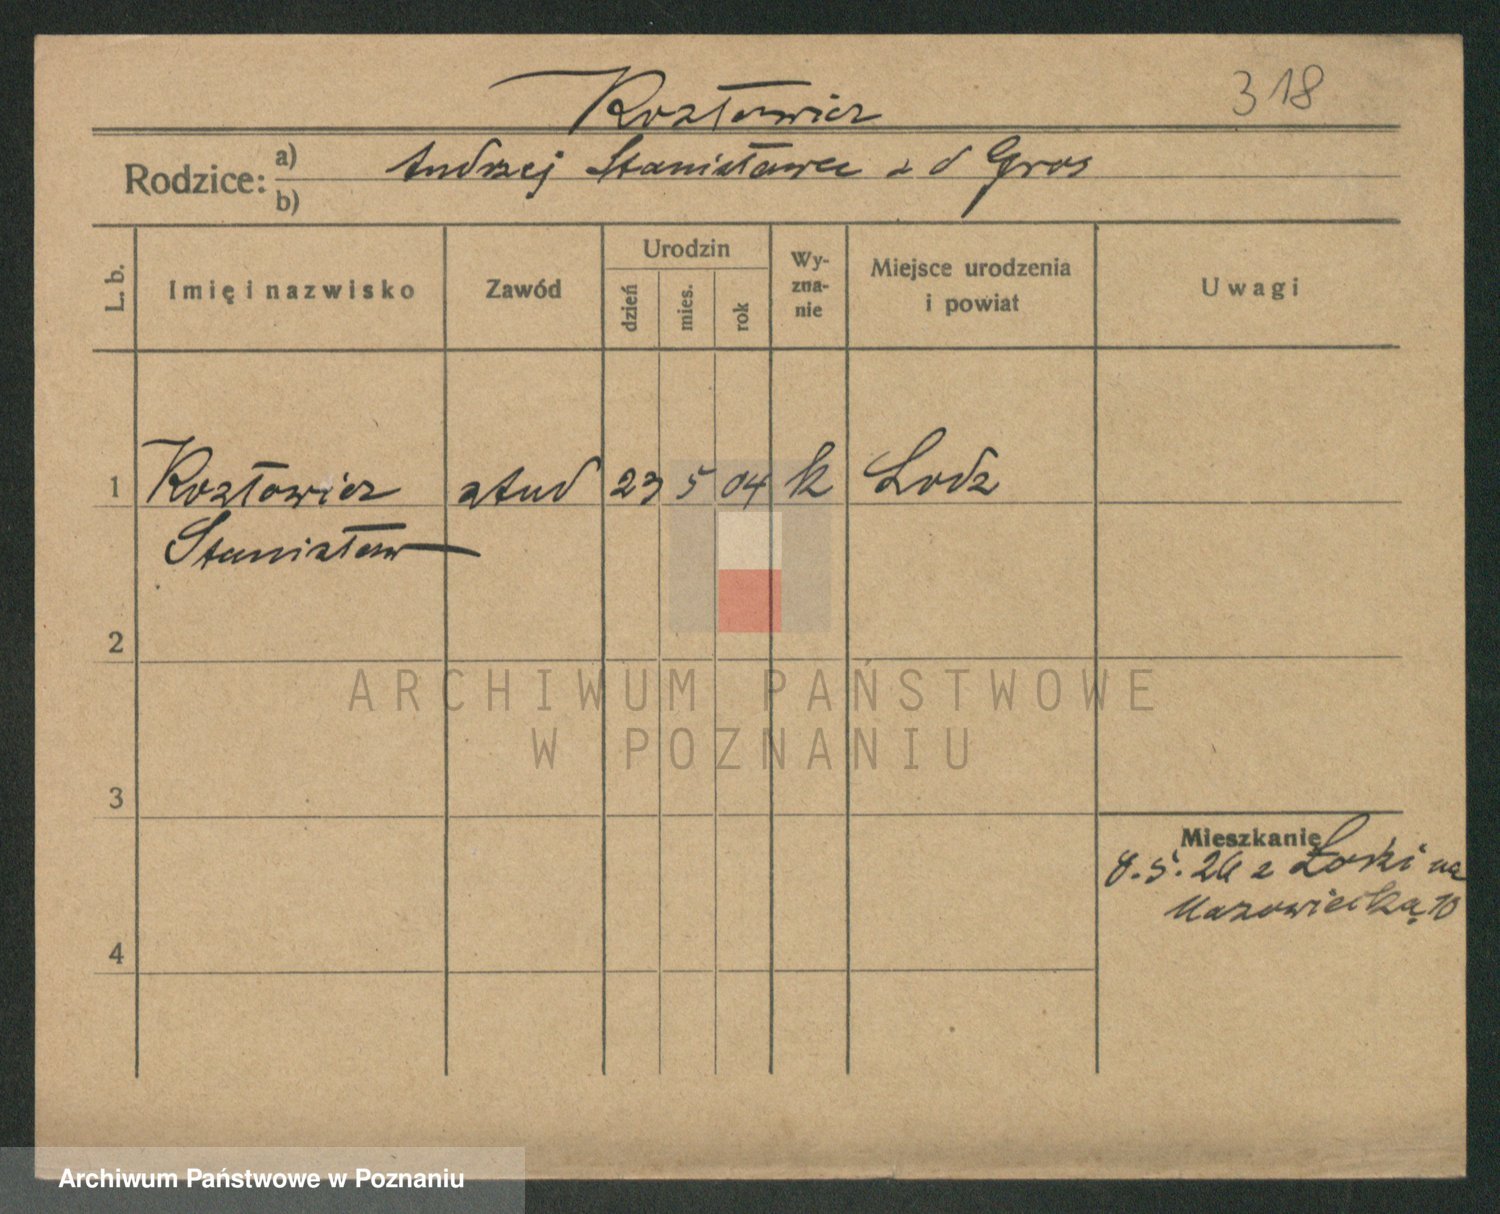 318
Rozłowicz
Rodzice:
a) Andrzej Stanisława z d Gros
b)
L. b.
Imię i nazwisko
Zawód
Urodzin
dzień
mies.
rok
Wy-
zna-
nie
Miejsce urodzenia
i powiat
Uwagi
1 Rozłowicz stud 23 5 04 k Lodz
Stanisław
2
3
4
Mieszkanie
8.5.26 z Łodzi na
Mazowiecką 10
ARCHIWUM PAŃSTWOWE
W POZNANIU
Archiwum Państwowe w Poznaniu